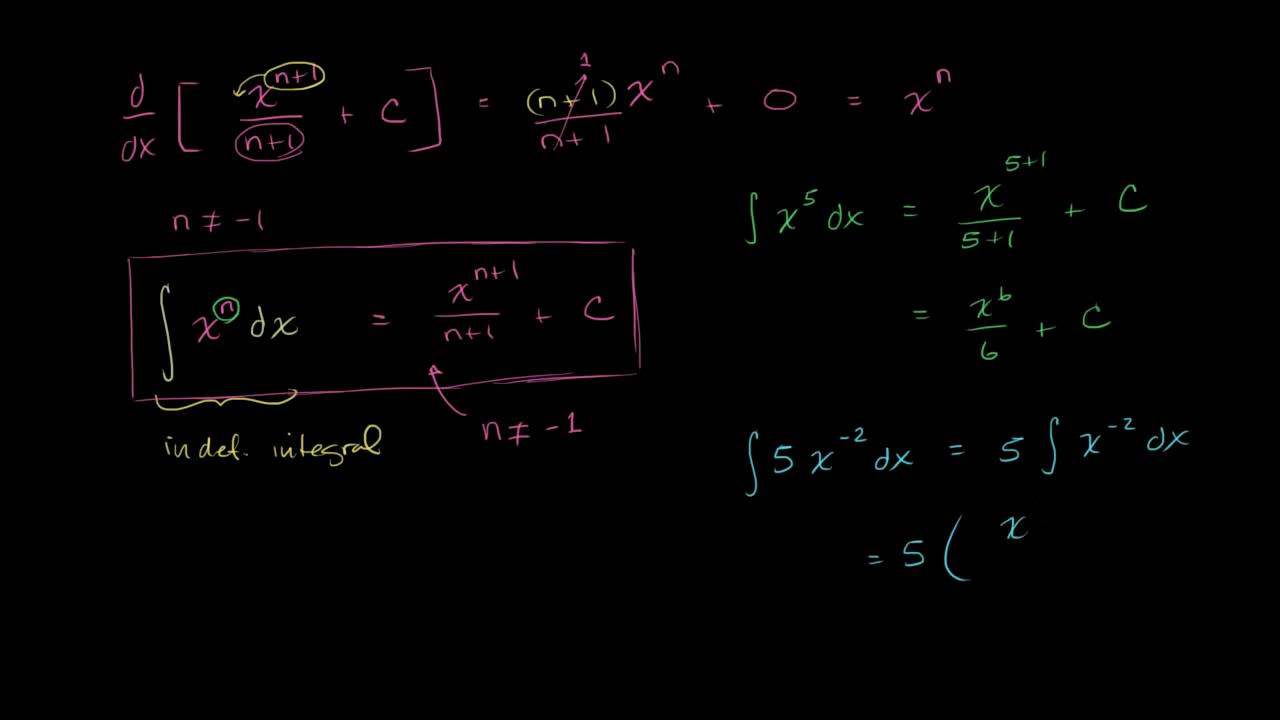 d/dx [ x^(n+1)/(n+1) + C ] = (n+1)x^n/(n+1) + 0 = x^n
1
n ≠ -1
∫ x^n dx = x^(n+1)/(n+1) + C
n ≠ -1
indef. integral
∫ x^5 dx = x^(5+1)/(5+1) + C
= x^6/6 + C
∫ 5 x^-2 dx = 5 ∫ x^-2 dx
= 5 ( x